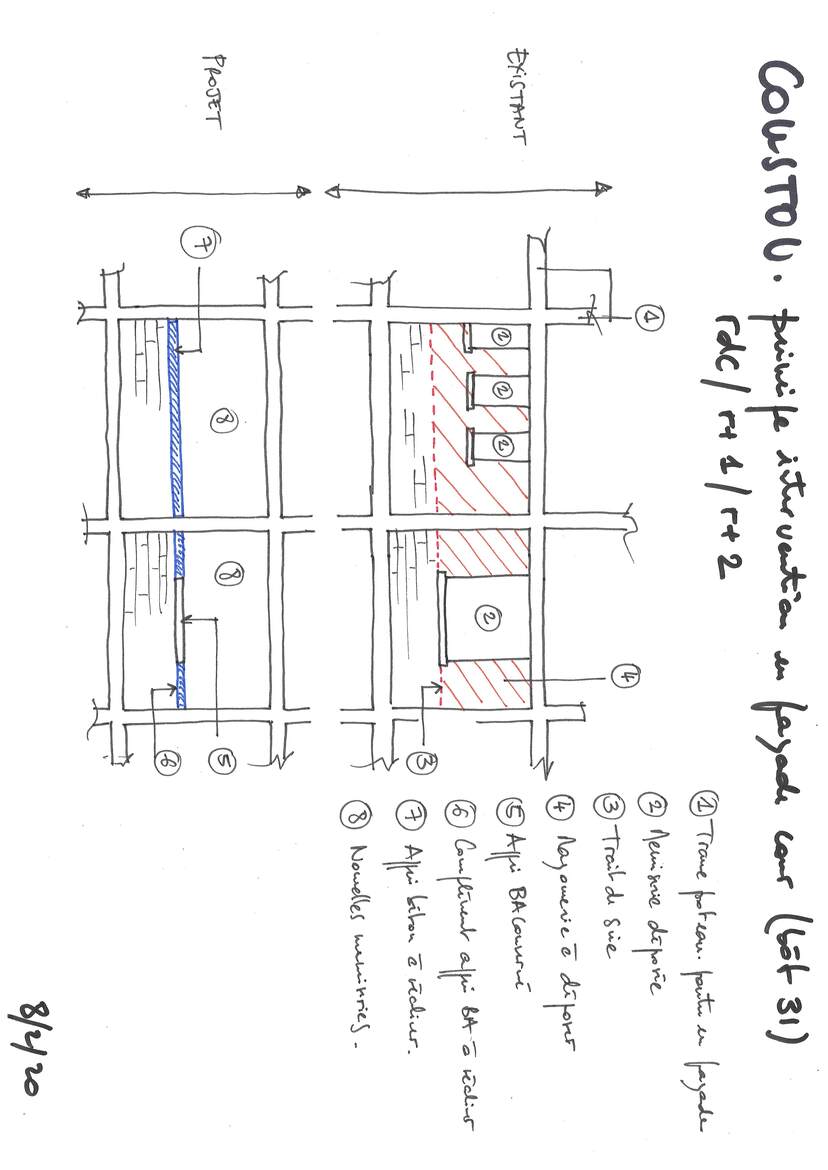 COUSTOU. principe intervention en façade cour (bât 31)
rdc / r+1 / r+2
1 Trame poteau. poutre en façade
2 Menuiserie déposée
3 Trait de scie
4 Maçonnerie à déposer
5 Appui BA conservé
6 Complément appui BA à réaliser
7 Appui béton à réaliser.
8 Nouvelles menuiseries.
1
4
EXISTANT
2 2 2 2
3
PROJET
8 8
5
7
6
8/2/20